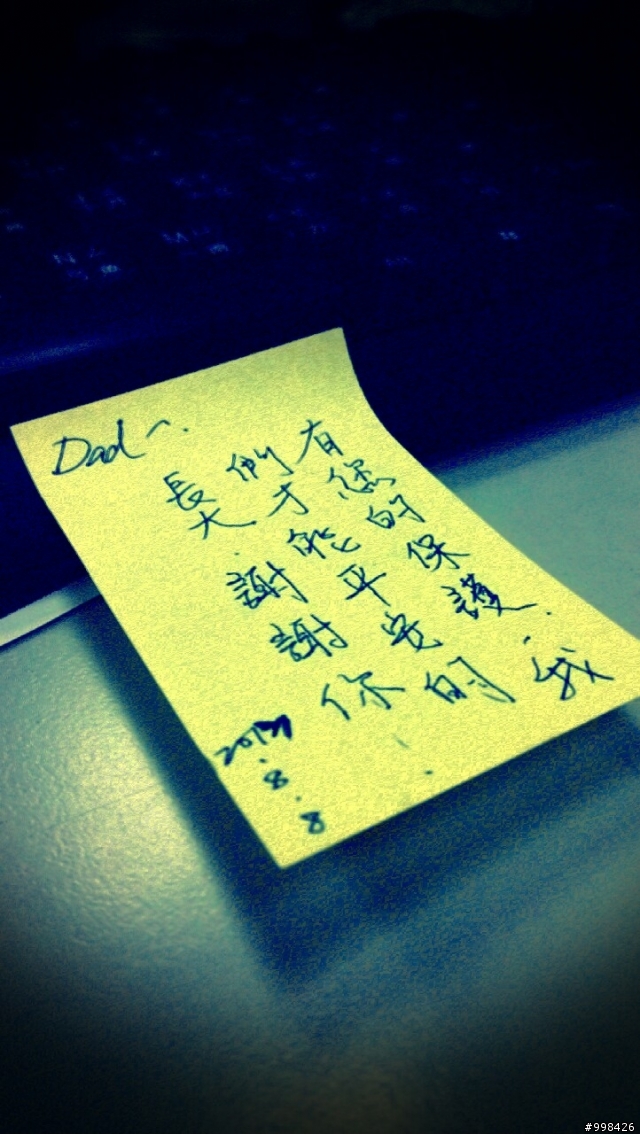 Dad~.
有您的保護、我
們才能平安的
長大.謝謝你
8.8
#998426